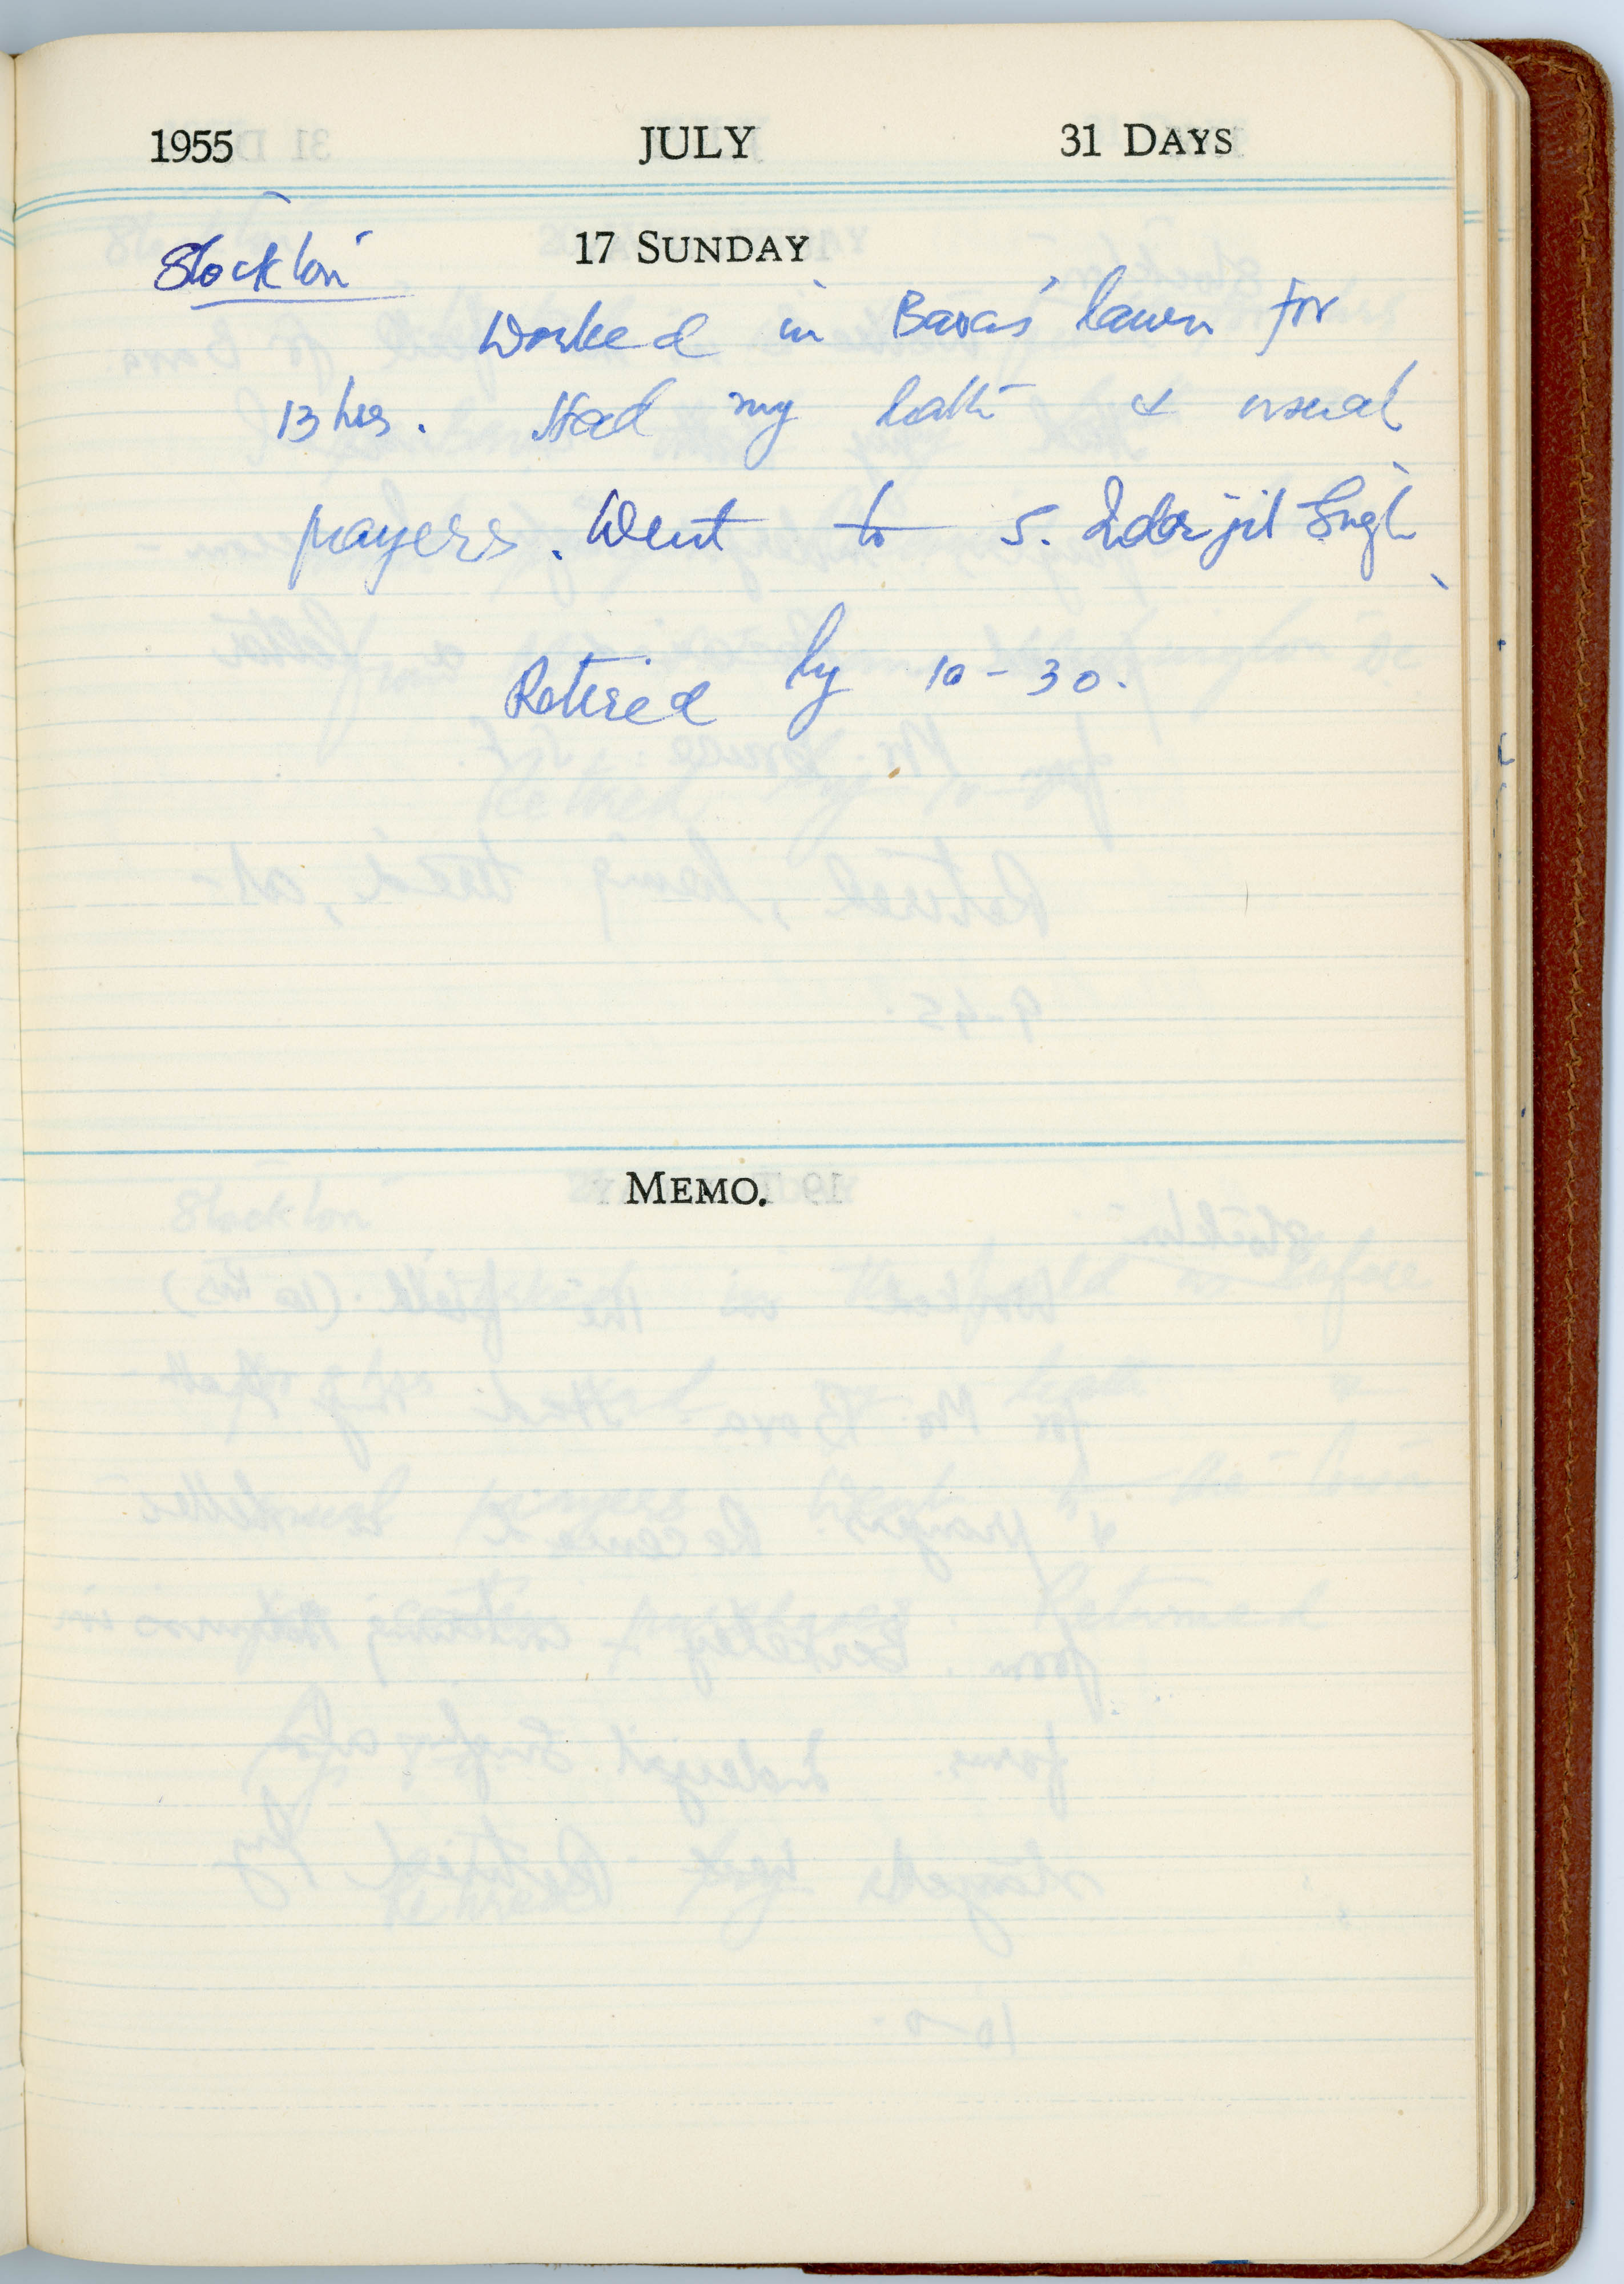 1955 JULY 31 DAYS
17 SUNDAY
Stockton
Worked in Bavas' lawn for
13 hrs. Had my bath & usual
prayers. Went to S. Inderjit Singh
Retired by 10-30.
MEMO.